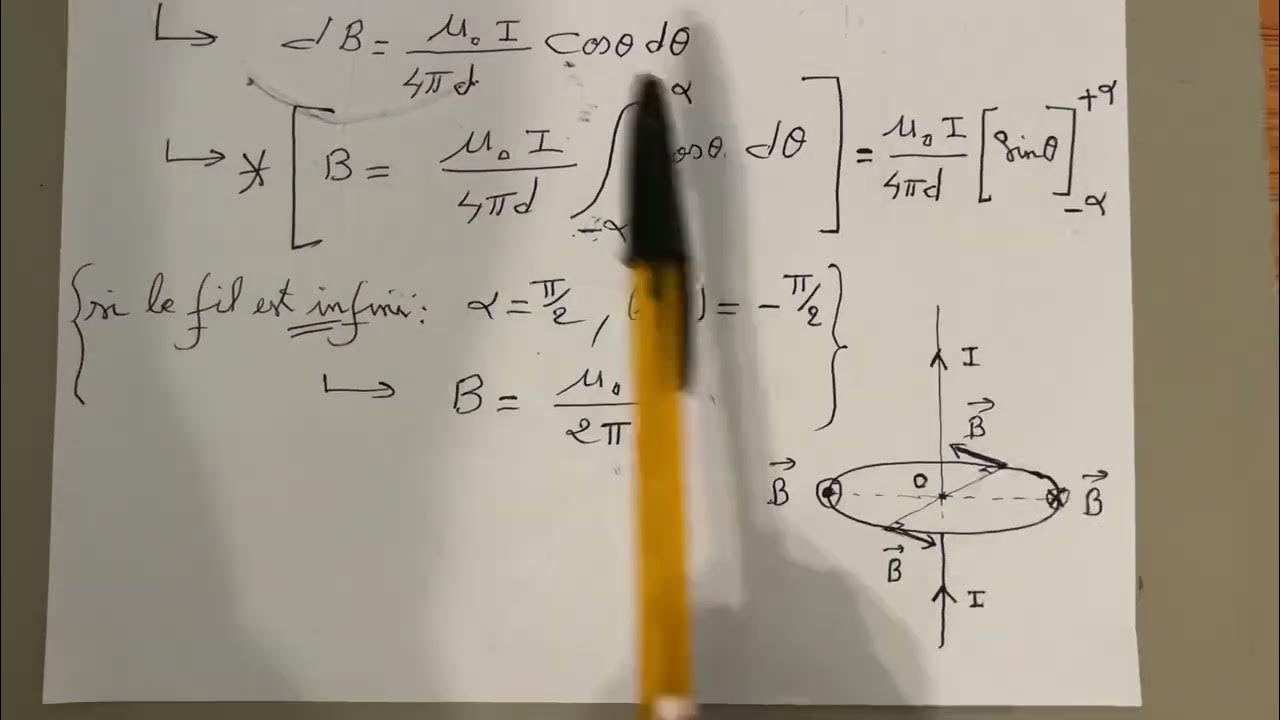 ↳ dB = μ₀ I / 4πd cosθ dθ
↳ * [ B = μ₀ I / 4πd ∫_{-α}^{α} cosθ. dθ ] = μ₀ I / 4πd [sinθ]_{-α}^{+α}
{ si le fil est infini: α = π/2, ( ) = -π/2 }
↳ B = μ₀ / 2π
I
B⃗
B⃗ O B⃗
B⃗
I